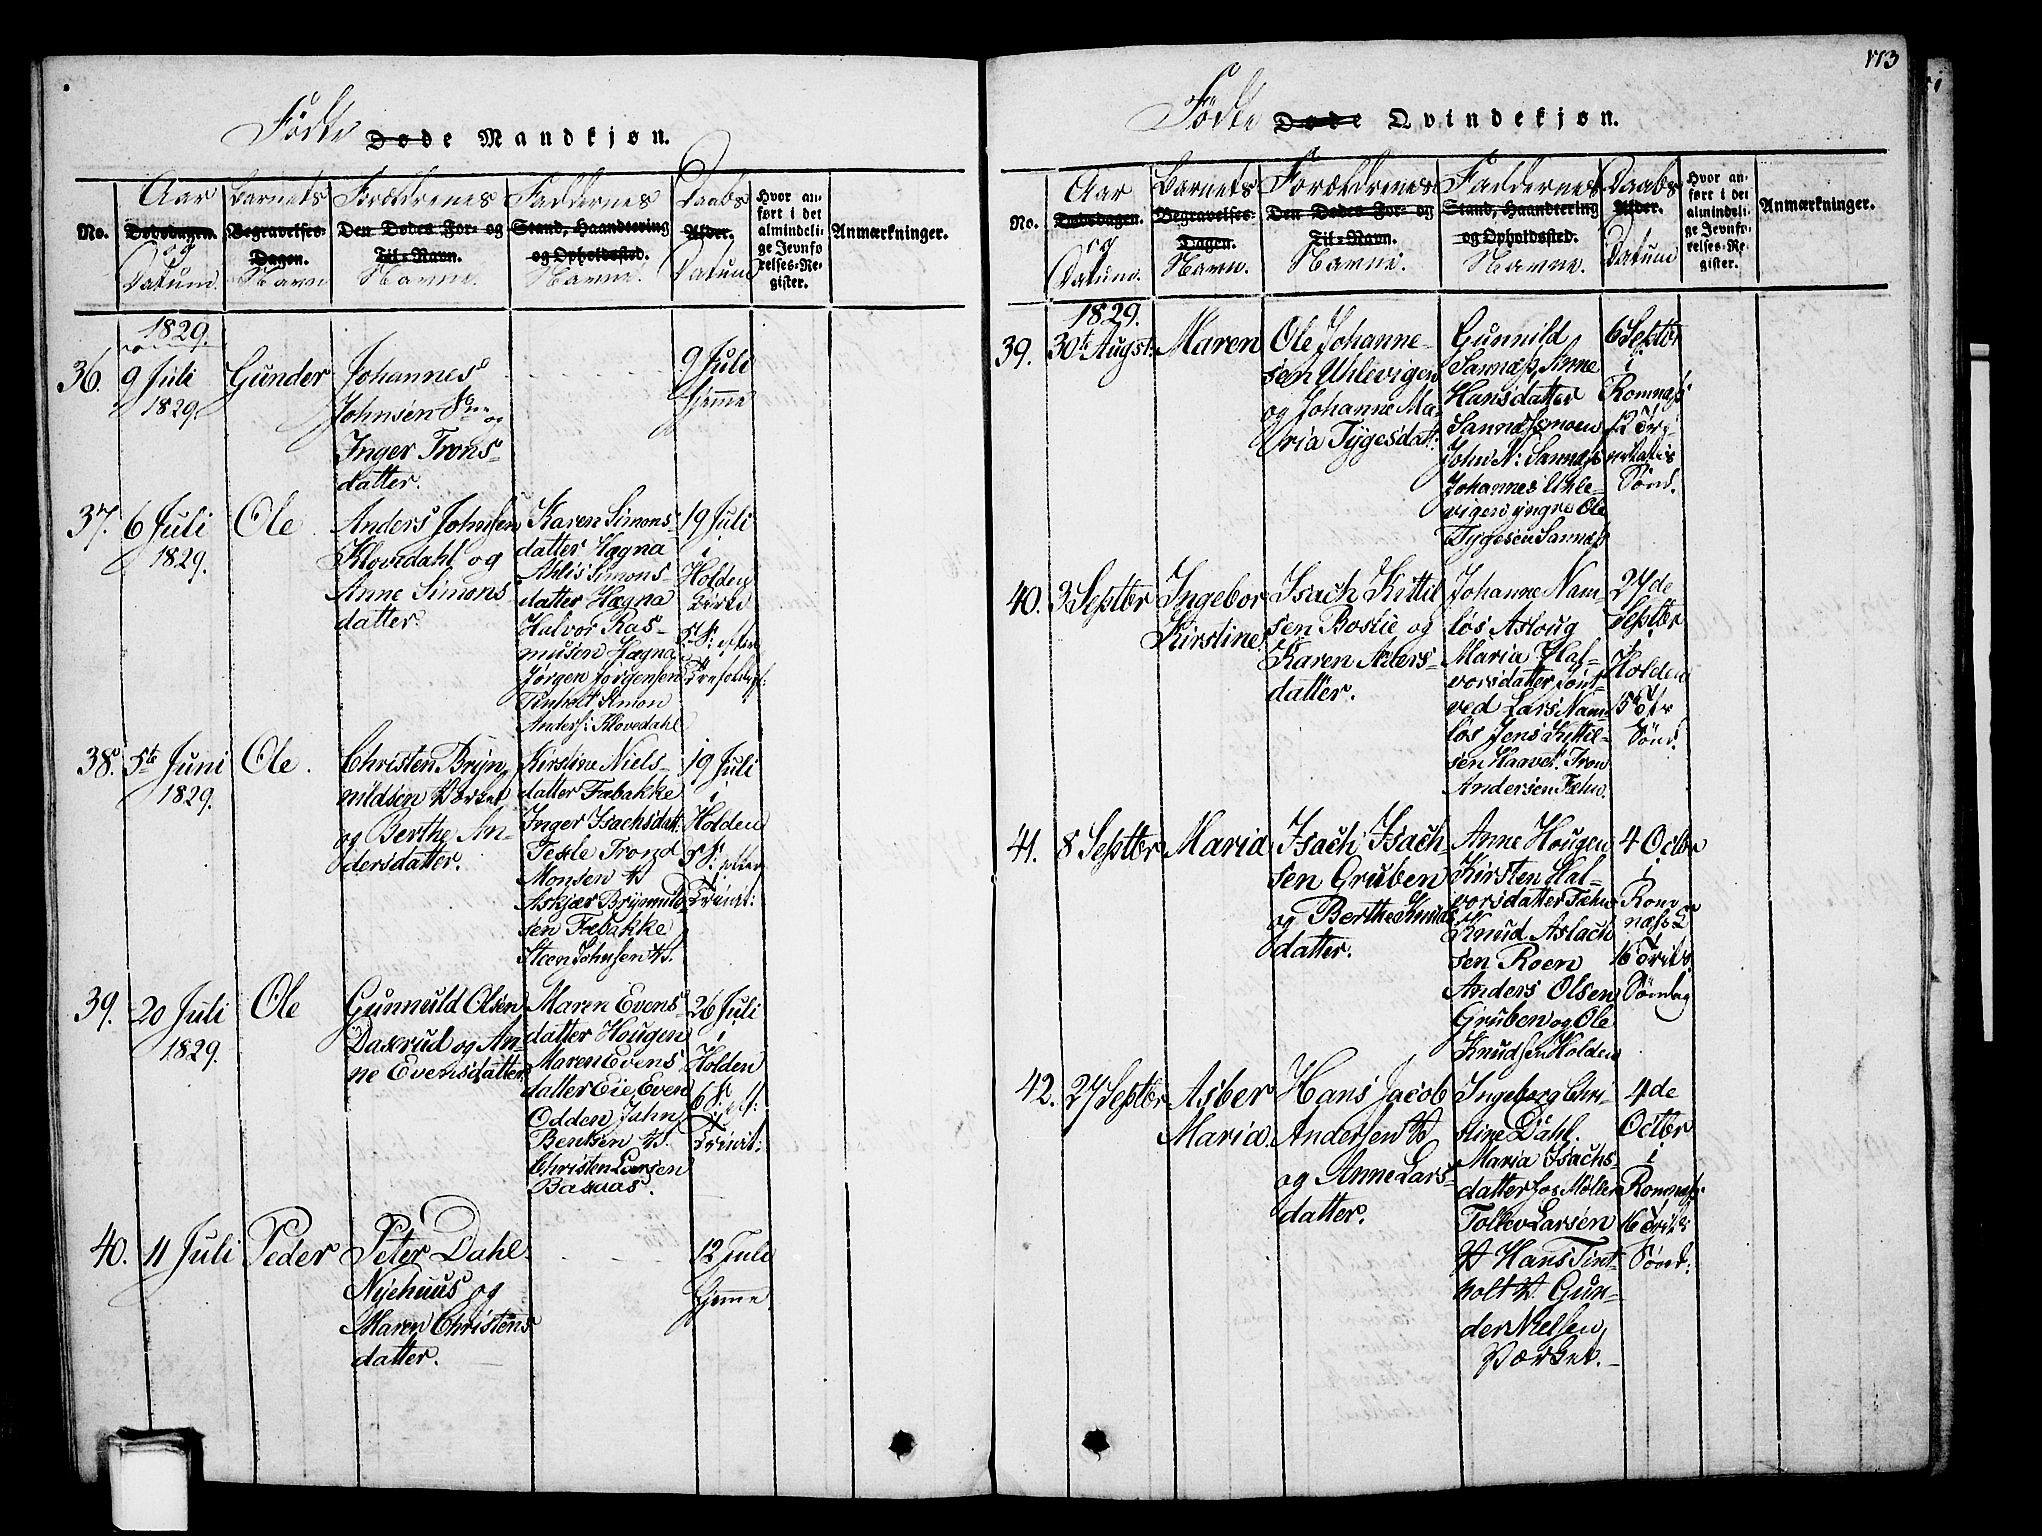 Fødte Døde Mandkjøn.
No.
Aar
Dødsdagen.
og
Datum.
Barnets
Begravelses-
Dagen.
Navn
Forældrenes
Den Dødes For- og
Til-Navn.
Navne.
Faddernes
Stand, Haandtering
og Opholdssted.
Navne.
Daabs
Alder.
Datum
Hvor an-
ført i det
almindeli-
ge Jevnfø-
relses-Re-
gister.
Anmærkninger.
1829.
36.
9 Juli
1829.
Gunder
Johannes
Johnsen
og
Inger Trons-
datter.
9 Juli
hjemme
37.
6 Juli
1829.
Ole
Anders Johnsen
Klovedahl og
Anne Simons
datter.
Karen Simons-
datter Hægna
Simons-
datter Hægna
Halvor Ras-
musen Hægna
Jørgen Jørgensen
Tinholt Simon
Anders: Klovedahl
19 Juli
i
Holden
Kirke
5 S: efter
38.
5te Juni
1829.
Ole.
Christen Bryn-
nildsen Værket
og Berthe An-
dersdatter.
Kirstine Niels-
datter Fæbakke
Inger Isachsdatt.
Trond
Monsen V.
Brynnild-
sen Fæbakke
Steen Johnsen V.
19 Juli
i
Holden
5 S: efter
Trinit:
39.
20 Juli
1829.
Ole
Gunnuld Olsen
Daserud og An-
ne Evensdatter
Maren Evens-
datter Hougen
Maren Evens
datter Eie Even
Odden John
Bentsen V.
Christen Larsen
26 Juli
i
Holden
6 S: eft:
Trinit:
40.
11 Juli
Peder
Peter Dahl
Nyehuus og
Maren Christens
datter.
12 Juli
hjemme
113
Fødte Døde Qvindekjøn.
No.
Aar
Dødsdagen.
og
Datum.
Barnets
Begravelses-
Dagen.
Navn.
Forældrenes
Den Dødes For- og
Til-Navn.
Navne.
Faddernes
Stand, Haandtering
og Opholdssted.
Navne.
Daabs
Alder.
Datum
Hvor an-
ført i det
almindeli-
ge Jevnfø-
relses-Re-
gister.
Anmærkninger.
1829.
39.
30te Augst:
Maren
Ole Johanne-
sen Uhlevigen
og Johanne Ma-
ria Tygesdatt.
Gunnild
Sannæs, Anne
Hansdatter
Sannæsmoen
John N: Sannæs
Johannes Uhle-
vigen yngre Ole
Tygesen Sannæs
6 Septbr
i
Romnæs
12
Sønd.
40.
3 Septbr
Ingebor
Kirstine
Isach Kittil-
sen Bostie og
Karen Anders-
datter.
Johanne Nam-
løs Asloug
Maria Hal-
vorsdatter
ved Lars Nam-
løs Jens Kittil-
sen Haavet. Tron
Andersen Fæhn.
27de
Septbr
i
Holden
15
Sønd.
41.
8 Septbr
Maria
Isach Isach-
sen Gruben
og Berthe Knuds
datter.
Anne Hougen
Kirsten Hal-
vorsdatter Fæhn
Knud Aslach
sen Roen
Anders Olsen
Gruben og Ole
Knudsen Holden
4 Octbr
i
Rom-
næs
16
Søndag
42.
27 Septbr
Asber
Maria.
Hans Jacob
Andersen V
og Anne Lars-
datter.
Ingeborg Chri-
stine Dahl.
Maria Isachs-
datter hos Møller
Tollev Larsen
V Hans Tint-
holt V. Gun-
der Nielsen
Værket.
4de
Octbr
i
Romnæs
16
Sønd: